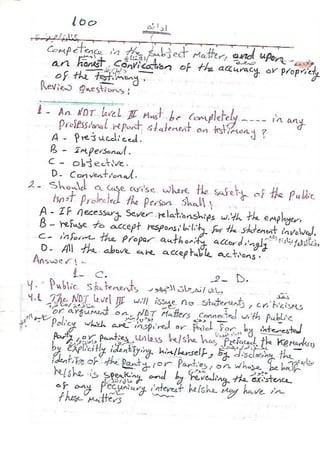 100
ادامه
Competence in the subject Matter, and upon
an honest Conviction of the accuracy or propriety
of the testimony.
Review Questions:
1 - An NDT level III Must be completely ---- in any
professional report, statement on testimony?
A - Prejudiced.
B - Impersonal.
C - objective.
D - Conventional.
2 - Should a case arise where the safety of the Public
isnot Protected the person shall:
A - If necessary sever relationships with the employer.
B - refuse to accept responsibility for the statement involved.
C - inform the proper authority accordingly
D - All the above are acceptable actions.
Answer:
1 - C. 2 - D.
4. Public Statements
4.1 The NDT Level III will issue no statements, criticisms
or argument on NDT Matters connected with public
Policy which are inspired or Paid for by interested
Party, or parties, unless he/she has Prefaced the Remark
by explicitly identifying him/herself, by disclosing the
identity of the Party, or Parties, on whose behalf
he/she is speaking and by revealing the existence
of any Pecuniary interest he/she may have in
these matters